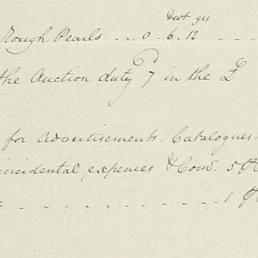 dwt grs
Rough Pearls . . . 0 . 6 . 12 . . .
the Auction duty 7d in the £
for advertisements, Catalogues
incidental expences & Com. 5
. . . . . . . . . 1